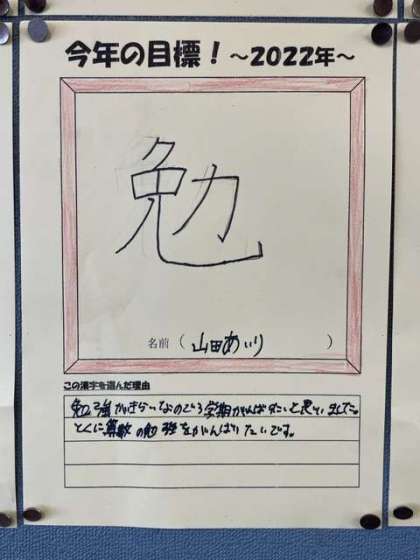 今年の目標！～2022年～
勉
名前（山田あいり）
この漢字を選んだ理由
勉強がきらいなので3学期がんばりたいと思いました。
とくに算数の勉強をがんばりたいです。